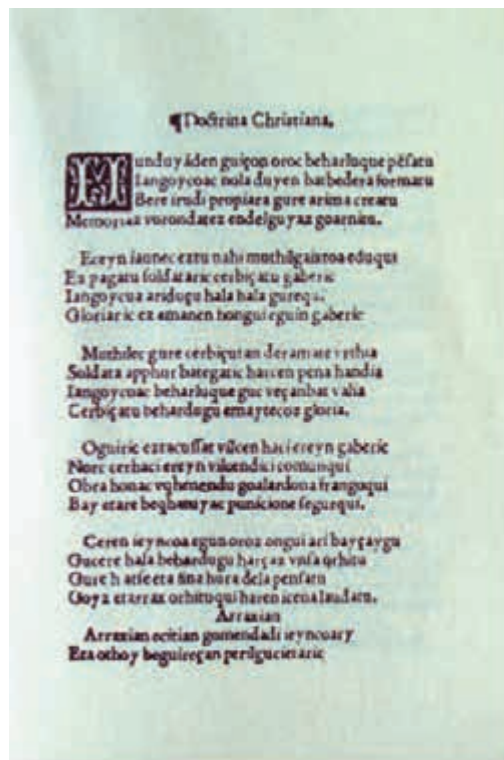 ¶Doctrina Christiana.
Munduyãden guiçon oroc beharluque pẽsatu
Iangoycoac nola duyen batbedera formatu
Bere irudi propiara gure arima creatu
Memoriaz vorondatez endelguyaz goarnitu.
Ereyn iaunec eztu nahi muthilgaixtoa eduqui
Ez pagatu soldataric cerbiçatu gaberic
Iangoycua ariduçu hala hala gurequi
Gloriaric ez emanen hongui eguin gaberic
Muthilec gure cerbiçutan deramate vrthia
Soldata apphur bategatic harcen pena handia
Iangoycoac beharluque guc veçanbat valia
Cerbiçatu behardugu emaytecoz gloria.
Oguiric eztacussat vilcen haci ereyn gaberic
Norc cerhaci ereyn vilcendici comunqui
Obra honac vqhenendu goalardona frangoqui
Bay etare beqhatuyac punicione segurqui.
Ceren ieyncoa egun oroz ongui ari bayçaygu
Gucere hala behardugu harçaz vnsa orhitu
Gure hatse eta fina hura dela pensatu
Goyz etarrax orhituqui haren icena laudatu.
Arraxian
Arraxian ecitian gomendadi ieyncoary
Eta othoy beguireçan perilgucietaric